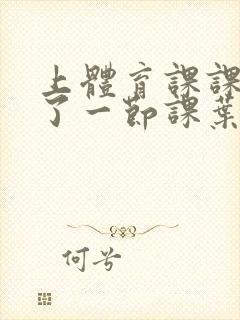 上體育課課
了一節課葉
何兮